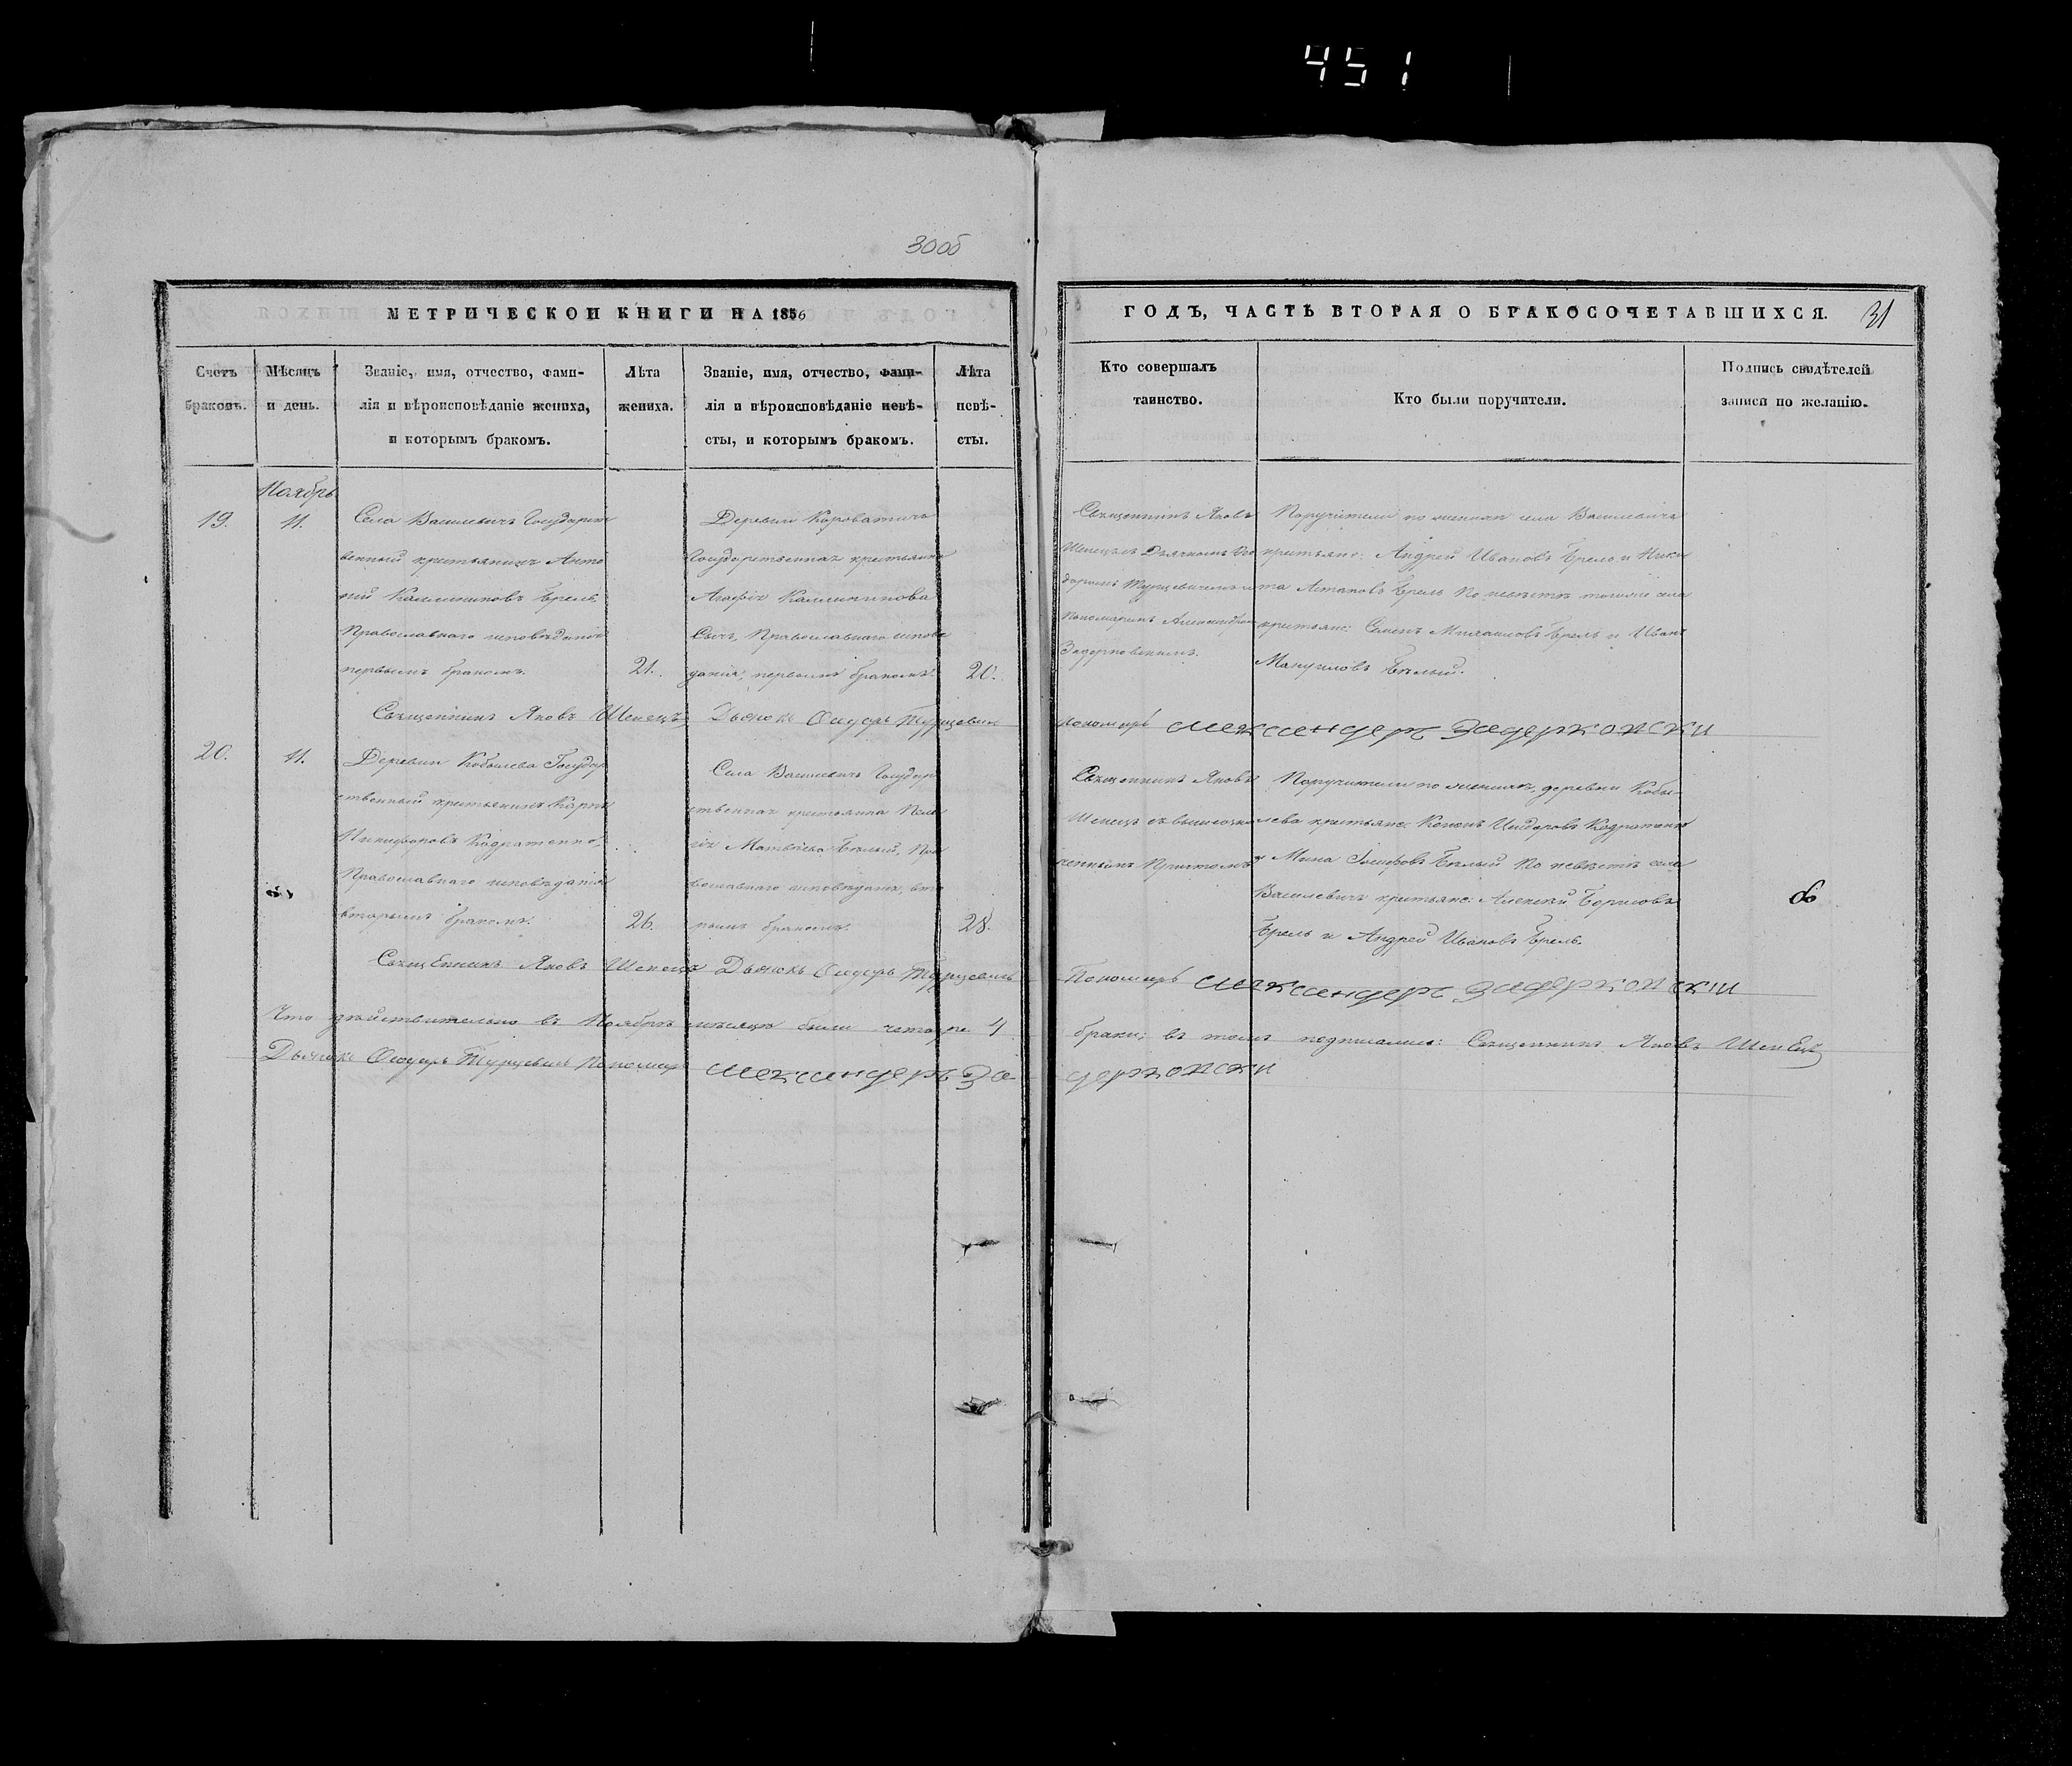 451
30об
МЕТРИЧЕСКОЙ КНИГИ НА 1856
ГОДЪ, ЧАСТЬ ВТОРАЯ О БРАКОСОЧЕТАВШИХСЯ.
31
Счетъ
браковъ.
Мѣсяцъ
и день.
Званіе, имя, отчество, фами-
лія и вѣроисповѣданіе жениха,
и которымъ бракомъ.
Лѣта
жениха.
Званіе, имя, отчество, фами-
лія и вѣроисповѣданіе невѣ-
сты, и которымъ бракомъ.
Лѣта
невѣ-
сты.
Кто совершалъ
таинство.
Кто были поручители.
Подпись свидѣтелей
записи по желанію.
Ноябрь
19.
11.
Села Василевичъ Государст
венный крестьянинъ Анто
ній Каллиниковъ Брель
Православнаго исповѣданія
первымъ бракомъ.
21.
Деревни Короватичъ
Государственная крестьянка
Агафія Каллиникова
Сычъ, Православнаго испове
данія, первымъ бракомъ.
20.
Священникъ Яковъ
Шепецъ съ Дьячкомъ Ѳео
доромъ Турцевичемъ и
Пономаремъ Александромъ
Задерковскимъ.
Поручители по женихѣ села Василевичъ
крестьяне: Андрей Ивановъ Брель и Ники
та Астаповъ Брель По невѣстѣ тогоже села
крестьяне: Семенъ Михаиловъ Брель и Иванъ
Мануиловъ Бѣлый.
Священникъ Яковъ Шепецъ Дьячокъ Ѳеодоръ Турцевичъ
Пономарь Александеръ Задерковски
20.
11.
Деревни Кобылева Государ
ственный крестьянинъ Карпъ
Никифоровъ Кодратенко
Православнаго исповѣданія
вторымъ бракомъ.
26.
Села Василевичъ Государ
ственная крестьянка Пела
гія Матвѣева Бѣлый, Пра
вославнаго исповѣданія, вто
рымъ бракомъ.
28.
Священникъ Яковъ
Шепецъ съ вышеозна
ченнымъ Причтомъ
Поручители по женихѣ, деревни Кобы-
лева крестьяне: Кононъ Исидоровъ Кодратенко
и Мина Іосифовъ Бѣлый По невѣстѣ села
Василевичъ крестьяне: Алексѣй Борисовъ
Брель и Андрей Ивановъ Брель.
Священникъ Яковъ Шепецъ Дьячокъ Ѳеодоръ Турцевичъ
Пономарь Александеръ Задерковски
Что дѣйствительно въ Ноябрѣ мѣсяцѣ были четыре 4
браки; въ томъ подписались: Священникъ Яковъ Шепецъ
Дьячокъ Ѳеодоръ Турцевичъ Пономарь Александеръ За-
дерковски